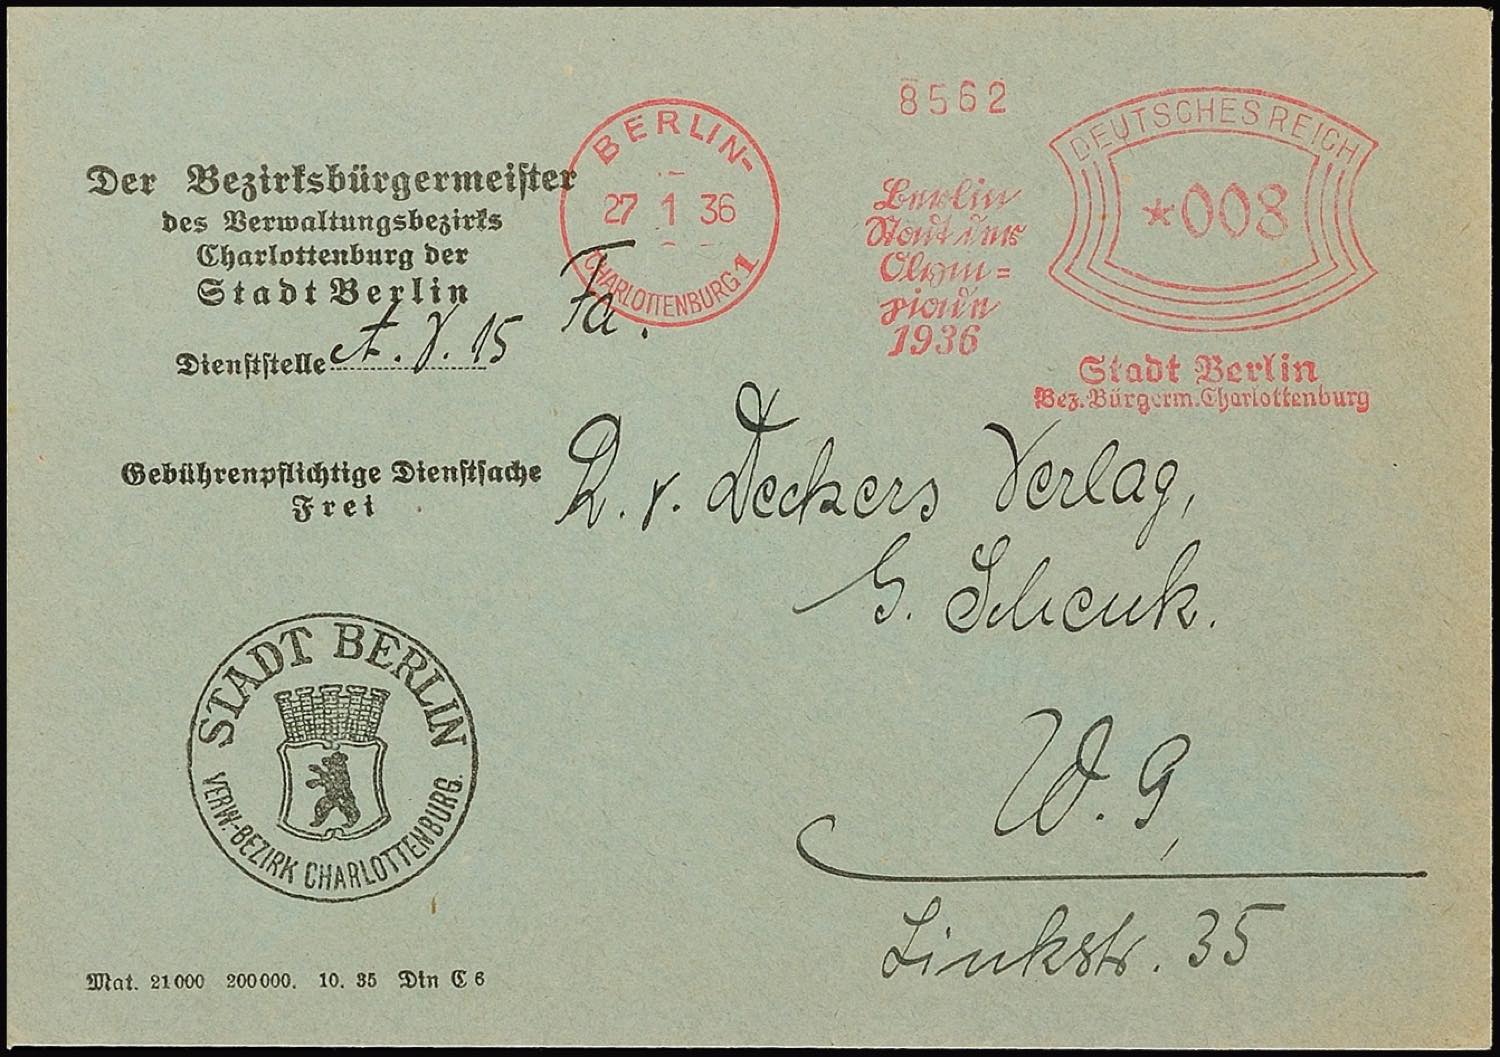 8562
DEUTSCHES REICH
*008
Berlin
Stadt der
Olym=
piade
1936
Stadt Berlin
Bez. Bürgerm. Charlottenburg
BERLIN-
27 1 36
CHARLOTTENBURG 1
Der Bezirksbürgermeister
des Verwaltungsbezirks
Charlottenburg der
Stadt Berlin
Dienststelle
15
Fa.
Gebührenpflichtige Dienstsache
Frei
R. v. Deckers Verlag,
G. Schenk.
W. 9,
Linkstr. 35
STADT BERLIN
VERW.-BEZIRK CHARLOTTENBURG.
Mat. 21000 200000. 10. 35 Din C 6